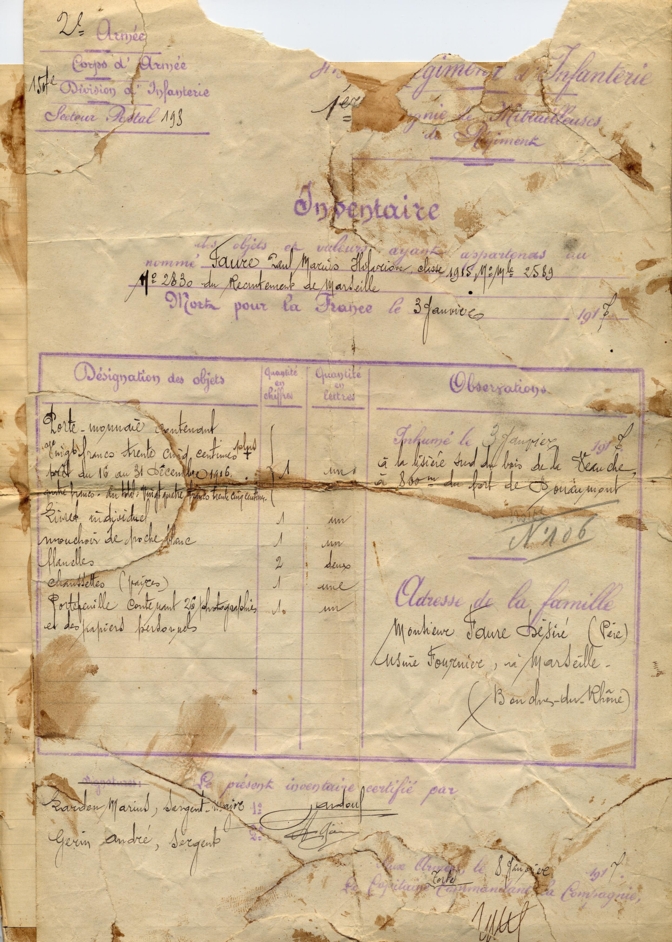 2e Armée
Corps d'Armée
Division d'Infanterie
Secteur Postal 193
Régiment d'Infanterie
1ère Compagnie de Mitrailleuses
du Régiment
Inventaire
des objets et valeurs ayant appartenus au
nommé Faure Paul Marius classe 1915, Mle 2589
No 2830 du Recrutement de Marseille
Mort pour la France le 3 Janvier 1917
Désignation des objets
Quantité en chiffres
Quantité en lettres
Observations
Porte-monnaie contenant
Vingt francs trente cinq centimes plus
prêt du 16 au 31 Décembre 1916
1 un
quatre francs - au total: vingt quatre francs trente cinq centimes
Livret individuel 1 un
mouchoir de poche blanc 1 un
flanelles 2 deux
chaussettes (paires) 1 une
Portefeuille contenant 26 photographies 1 un
et des papiers personnels
Inhumé le 3 Janvier 1917
à la lisière sud du bois de la
à 800m du fort de Douaumont
N° 106
Adresse de la famille
Monsieur Faure Désiré (Père)
Usine Fournier, à Marseille -
(Bouches-du-Rhône)
Signatures
Le présent inventaire certifié par
Marius, Sergent-Major 1°
Gerin André, Sergent 2°
Aux Armées le 8 Janvier 1917.
Le Capitaine Commandant la Compagnie,